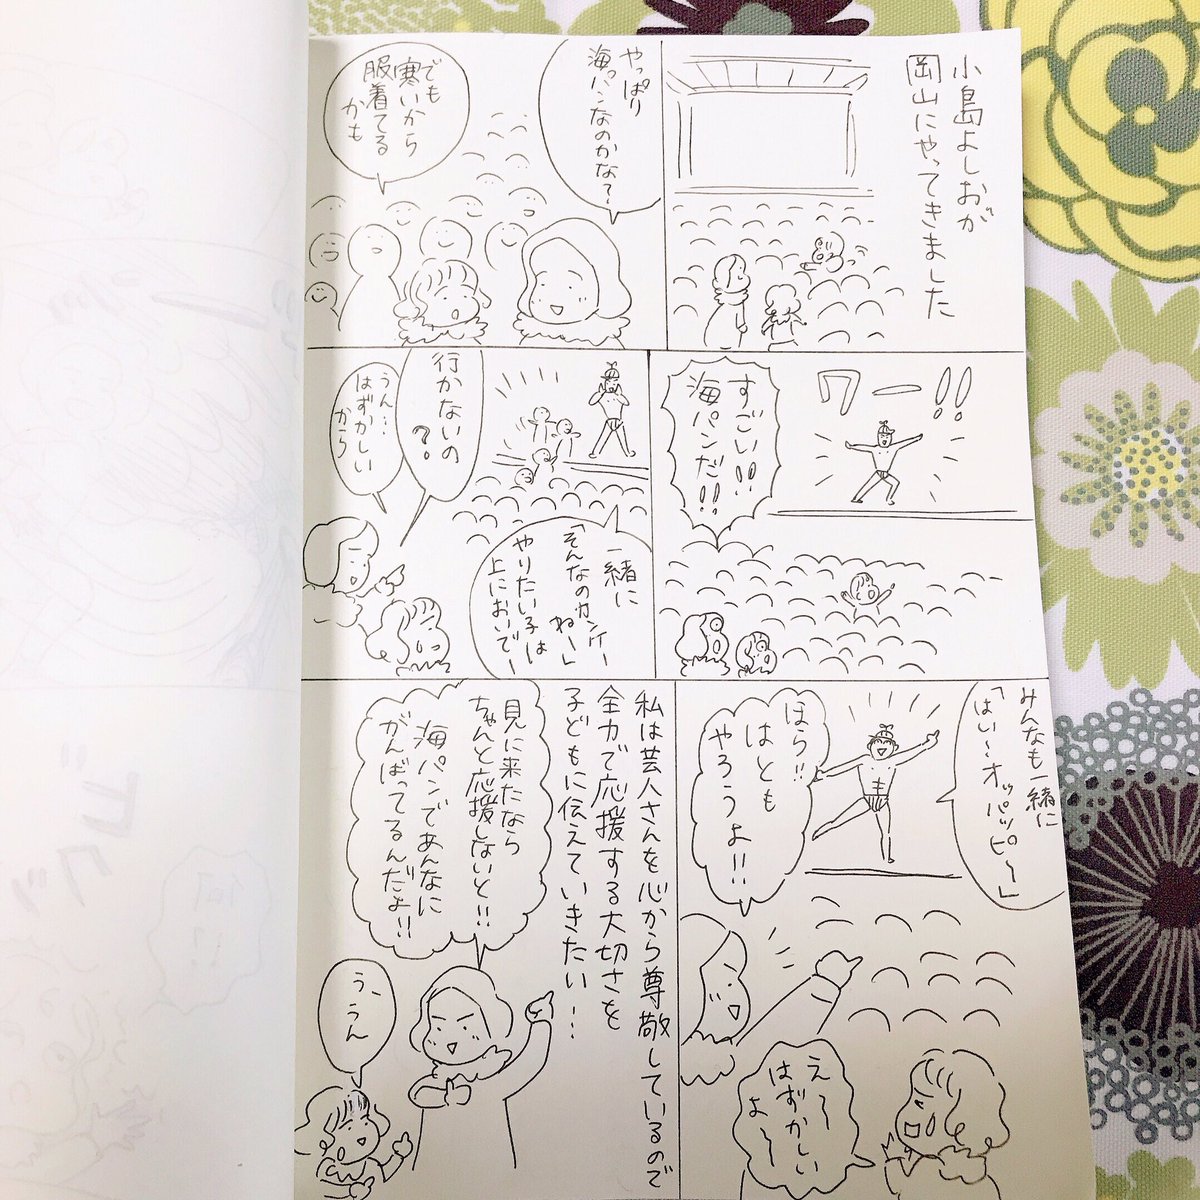 小島よしおが
岡山にやってきました
やっぱり
海パンなのかな？
でも
寒いから
服着てる
かも
ワー!!
すごい!!
海パンだ!!
一緒に
「そんなのカンケー
ねー」
やりたい子は
上においでー
行かないの
？
うん…
はずかしい
から
みんなも一緒に
「はい〜オッパッピ〜」
ほら!!
はとも
やろうよ!!
え〜
はずかしい
よ〜
私は芸人さんを心から尊敬しているので
全力で応援する大切さを
子どもに伝えていきたい…
見に来たなら
ちゃんと応援しないと!!
海パンであんなに
がんばってるんだよ!!
う、うん